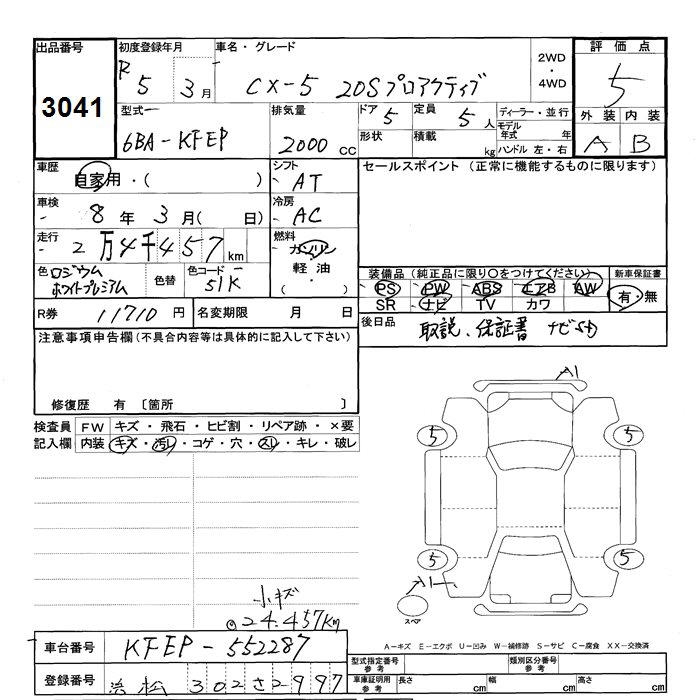 出品番号 初度登録年月 車名・グレード 評価点
3041 R5 3月 CX-5 20Sプロアクティブ 2WD・4WD 5
型式 排気量 ドア 5 定員 5人 ディーラー・並行 外装 内装
6BA-KFEP 2000cc 形状 積載 kg モデル年式 年 A B
ハンドル 左・右
車歴 自家用・( ) シフト AT セールスポイント(正常に機能するものに限ります)
車検 8年3月( 日) 冷房 AC
走行 2万4千457km 燃料 ガソリン
軽油
・( )
色 ロジウムホワイトプレミアム 色替 色コード 51K
装備品(純正品に限り○をつけてください) 新車保証書
PS PW ABS エアB AW 有・無
SR ナビ TV カワ
R券 11710円 名変期限 月 日
後日品 取説、保証書 ナビSD
注意事項申告欄(不具合内容等は具体的に記入して下さい)
修復歴 有〔箇所 〕
検査員記入欄 FW キズ・飛石・ヒビ割・リペア跡・×要
内装 キズ・汚レ・コゲ・穴・スレ・キレ・破レ
A1
5 5
5 5
A1
スペア
小キズ
24.457Km
A-キズ E-エクボ U-凹み W-補修跡 S-サビ C-腐食 XX-交換済
車台番号 KFEP-552287
型式指定番号 参考 類別区分番号 参考
登録番号 浜松302さ2997
車庫証明用 参考 長さ cm 幅 cm 高さ cm